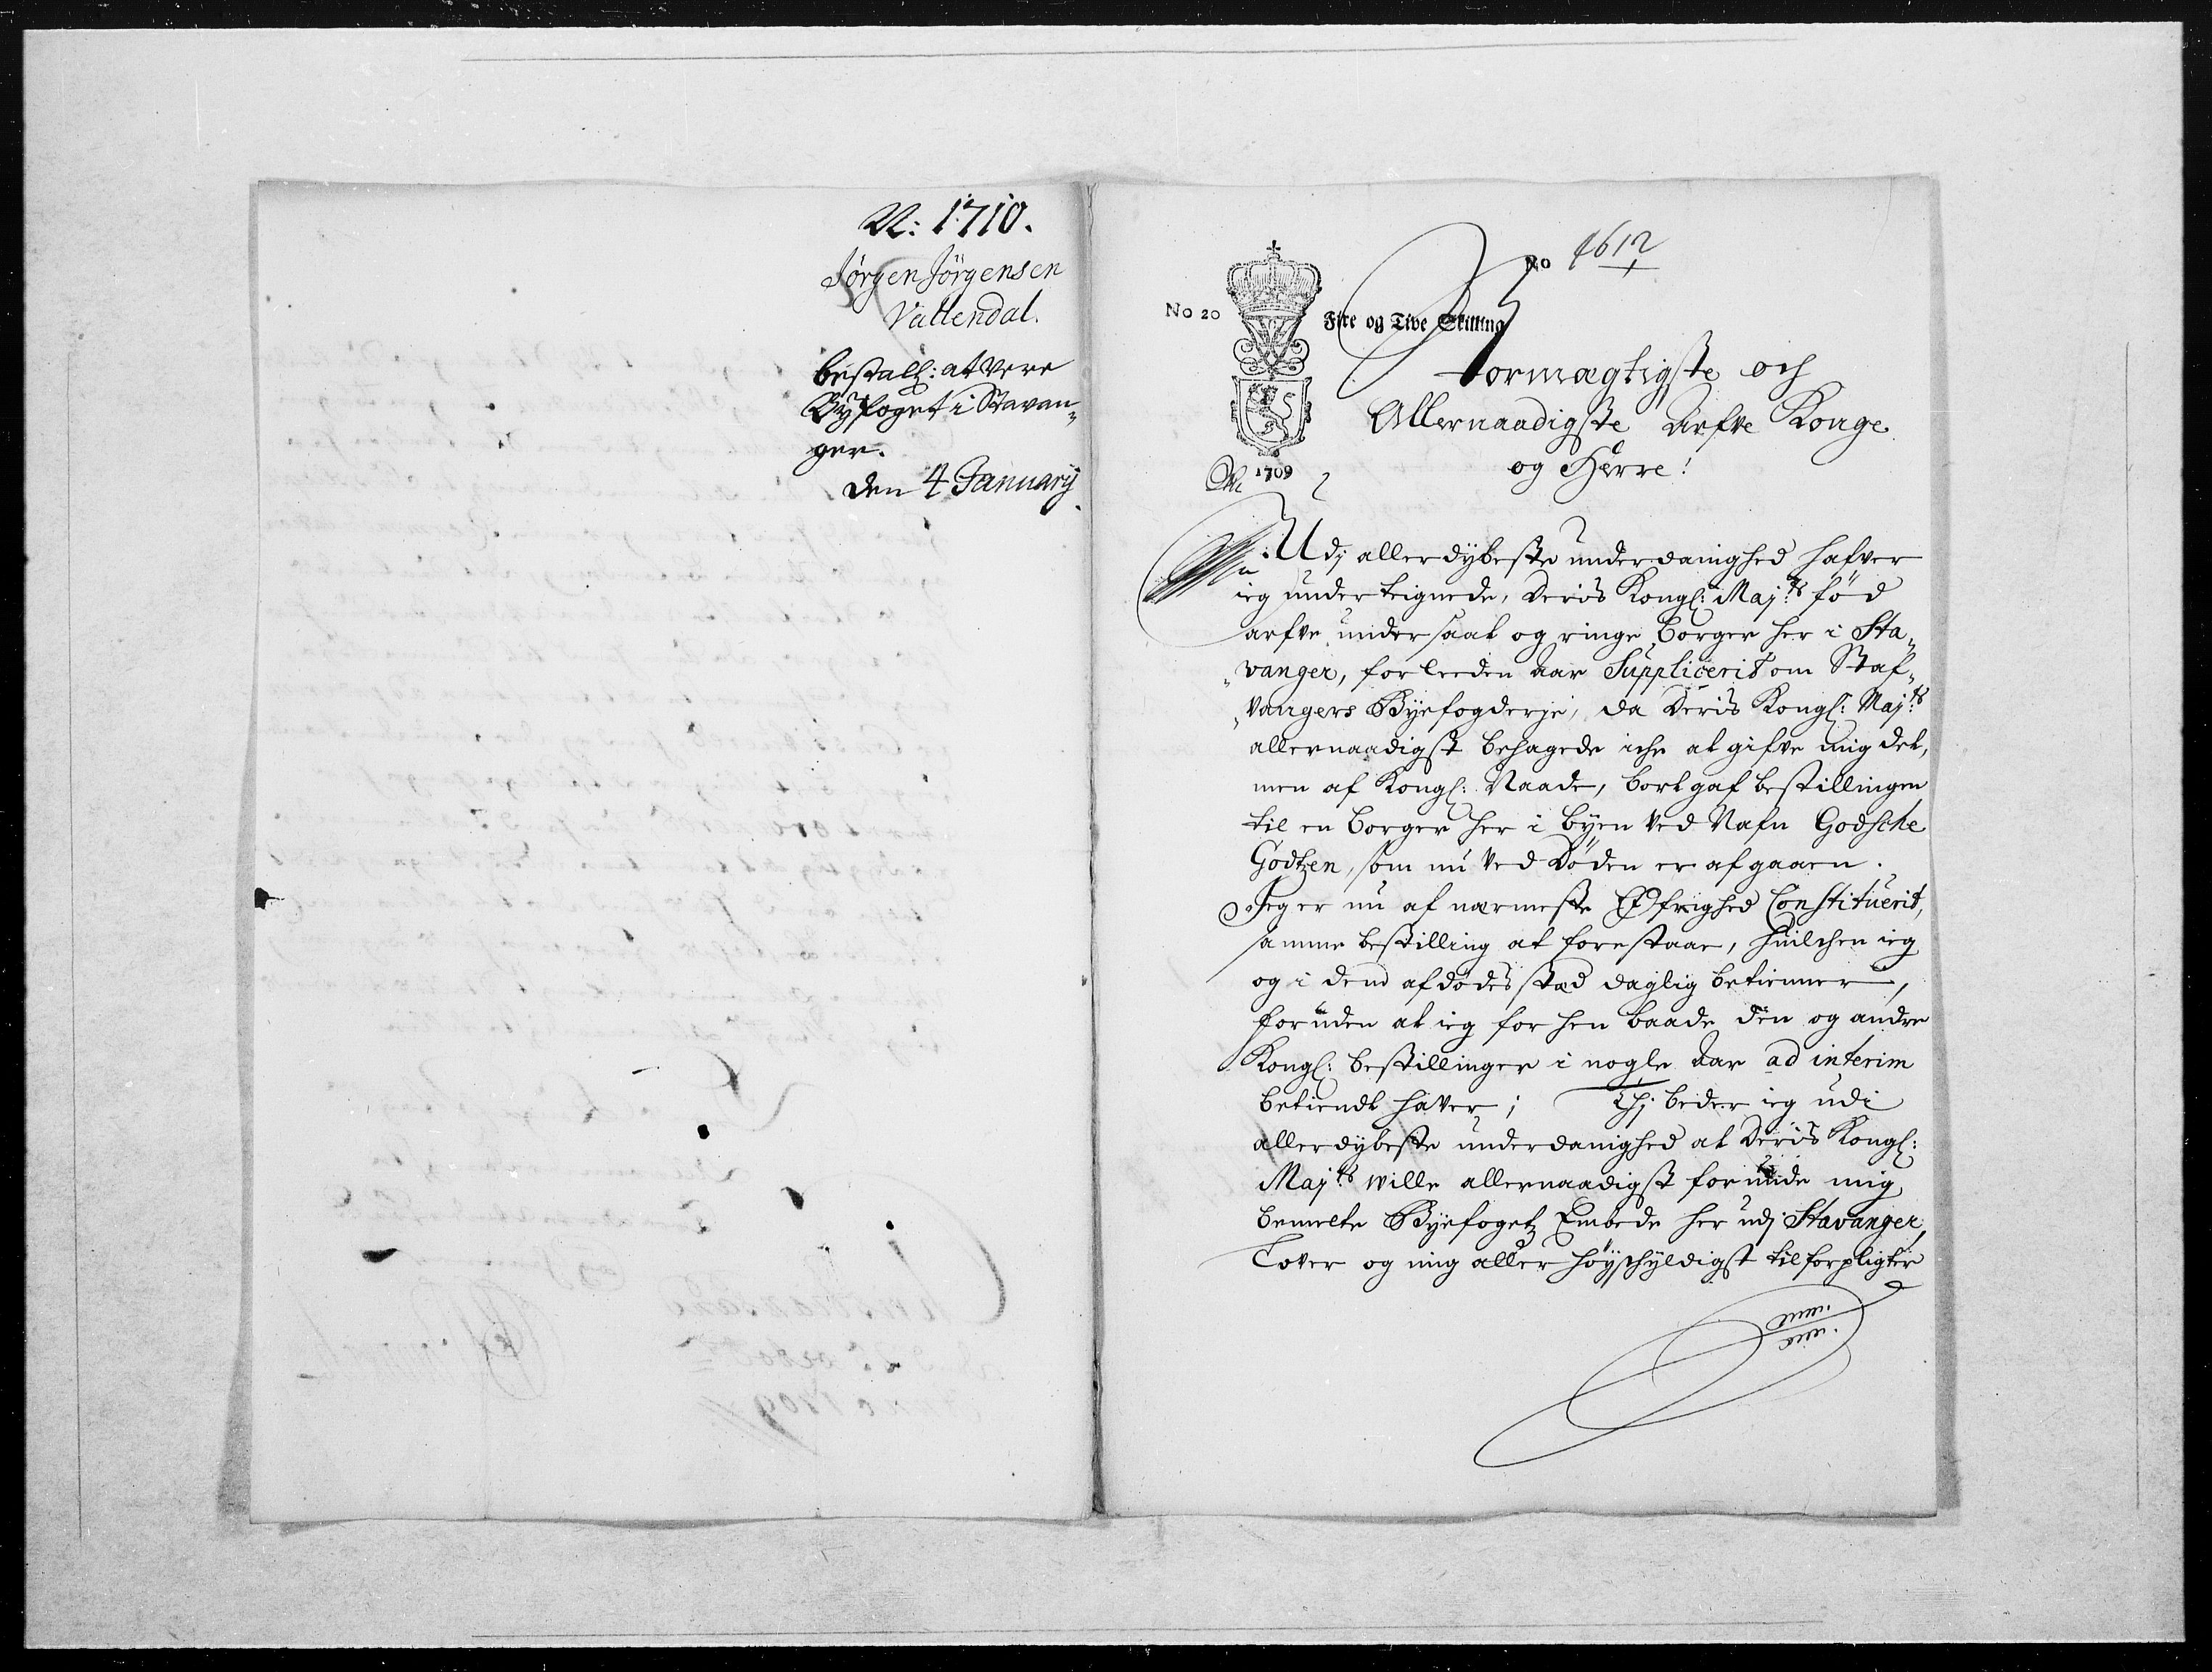 N: 1710.
Jörgen Jörgensen
Vallendal.
bestall: at være
Byfoget i Stavan„
ger.
den 4 Januarij
No 1612
No 20
Fire og Tive Skilling
1709
Stormægtigste och
Allernaadigste Arfve Konge
og Herre!
Udj allerdybeste underdanighed hafver
ieg underteignede, Deris Kongl: Maj:ts fød
arfve undersaat og ringe borger her i Sta„
„vanger, forleeden Aar Supplicerit om Staf„
„vangers Byefogderje, da Deris Kongl: Maj:ts
allernaadigst behagede iche at gifve mig det,
men af Kongl: Naade, bortgaf bestillingen
til en borger her i byen ved Nafn Godsche
Godtzen, som nu ved Døden er afgaaen.
Jeg er nu af nærmeste Øfrighed Constituerit,
samme bestilling at forestaae, huilchen ieg
og i dend afdødes stæd daglig betienner,
foruden at ieg for hen baade den og andre
Kongl: bestillinger i nogle Aar ad interim
betiendt haver; Thj beder ieg udi
allerdybeste underdanighed at Deris Kongl:
Maj:ts wille allernaadigst forunde mig
bemelte Byefogetz Embede her udj Stavanger,
Lover og mig aller høyschyldigst tilforpligter